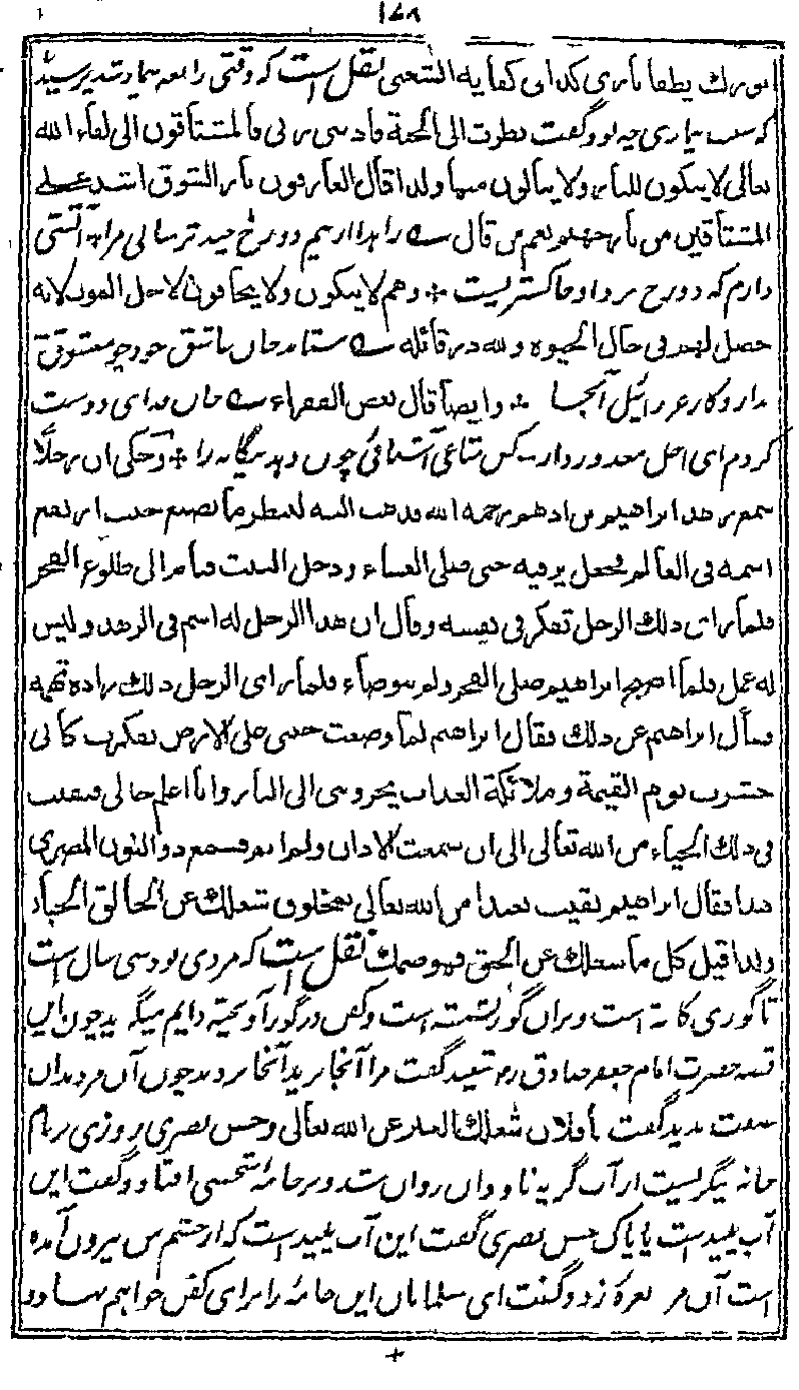 ۱۶۸
نورك يطفا ناري كذا في كفاية الشعبي نقل است كه وقتي رابعه بيمار شد پرسيدند
كه سبب بيماري چه بود گفت نظرت الى الجنة فادبني ربي فالمشتاقون الى لقاء الله
تعالى لا يبكون للنار ولا يبالون منها ولذا قال العارفون نار الشوق اشد على
المشتاقين من نار جهنم ونعم من قال زاهدا از بيم دوزخ چند ترساني مرا آتشي
دارم كه دوزخ نزد او خاكستريست وهم لا يبكون ولا يخافون لاجل الموت لانه
حصل لهم في حال الحيوة ولله در قائله ستاند جان عاشق خود چو معشوق
ندارد كار عزرائيل آنجا وايضا قال بعض الفقراء جان فداي دوست
كردم اي اجل معذور دار كس متاع آشنائي چون دهد بيگانه را وحكي ان رجلا
سمع زهد ابراهيم بن ادهم رحمه الله فذهب اليه لينظر ما يصنع حيث ارتفع
اسمه في العالم فجعل يرقبه حتى صلى العشاء ودخل البيت فنام الى طلوع الفجر
فلما راى ذلك الرجل تفكر في نفسه وقال ان هذا الرجل له اسم في الزهد وليس
له عمل فلما اصبح ابراهيم صلى الفجر ولم يتوضاء فلما راى الرجل ذلك زاده تهمة
فسأل ابراهيم عن ذلك فقال ابراهيم لما وضعت جنبي على الارض تفكرت كاني
حشرت يوم القيمة وملائكة العذاب يجروني الى النار وانا اعلم حالي فبقيت
في ذلك الحياء من الله تعالى الى ان سمعت الاذان ولم انم فسمع ذو النون المصري
هذا فقال ابراهيم بقيت بعيدا من الله تعالى بمخلوق شغلك عن الخالق الجبار
ولذا قيل كل ما شغلك عن الحق فهو صنمك نقل است كه مردي بود سي سال است
تا گوري كافته است وبران گور نشسته است وكفن در گور آويخته دايم ميگريد چون اين
قصه حضرت امام جعفر صادق رض شنيد گفت مرا آنجا بريد آنجا بردند چون آن مرد بدان
صفت بديد گفت يا فلان شغلك العبد عن الله تعالى وحسن بصري روزي بر بام
خانه ميگريست از آب گريه ناودان روان شد و بر جامهٔ شخصي افتاد و گفت اين
آب پليد است يا پاك حسن بصري گفت اين آب پليد است كه از چشم من بيرون آمده
است آن مرد نعرهٔ زد و گفت اي مسلمانان اين جامه را براي كفن خواهم نهاد و